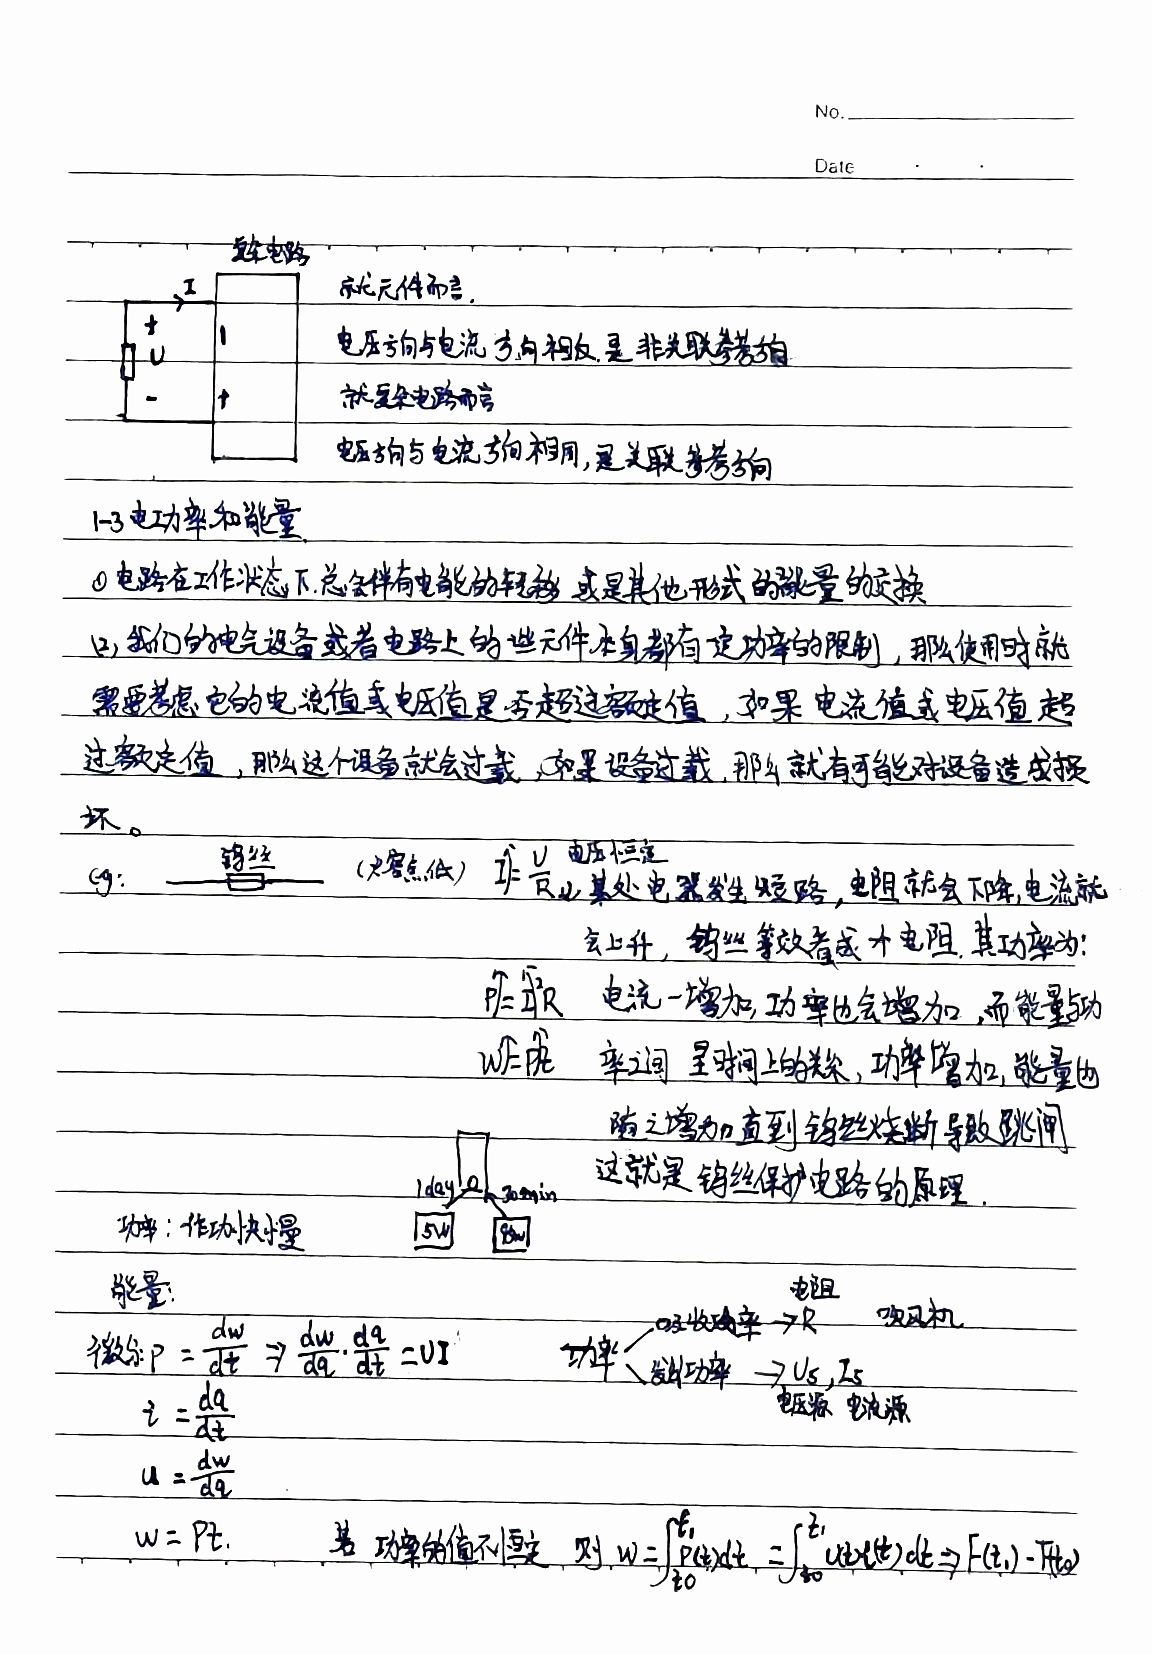 No.
Date
复杂电路
I
就元件而言.
+
U
-
电压方向与电流方向相反.是非关联参考方向
+
就复杂电路而言
电压方向与电流方向相同,是关联参考方向
1-3电功率和能量
① 电路在工作状态下.总会伴有电能的转移 或是其他形式的能量的交换
(2)我们的电气设备或者电路上的一些元件本身都有一定功率的限制,那么使用时就
需要考虑它的电流值或电压值是否超过额定值,如果电流值或电压值超
过额定值,那么这个设备就会过载,如果设备过载,那么就有可能对设备造成损
坏。
eg: 钨丝 (大熔点低) I↑=U/R↓ 电压恒定 某处电器发生短路,电阻就会下降,电流就
会上升,钨丝等效看成个电阻.其功率为:
P↑=I↑²R 电流一增加,功率也会增加,而能量与功
W↑=P↑t 率之间 是时间上的关系,功率增加,能量也
随之增加直到钨丝烧断导致跳闸
这就是钨丝保护电路的原理.
1day 30min
功率:作功快慢 5W
能量:
电阻
吸收功率→R 吹风机
微分:P=dw/dt⇒dw/dq·dq/dt=UI 功率
发出功率→Us,Is
电压源 电流源
i=dq/dt
u=dw/dq
w=Pt. 若功率的值不恒定 则 w=∫t0^t1 P(t)dt=∫t0^t1 u(t)i(t)dt⇒F(t1)-F(t0)